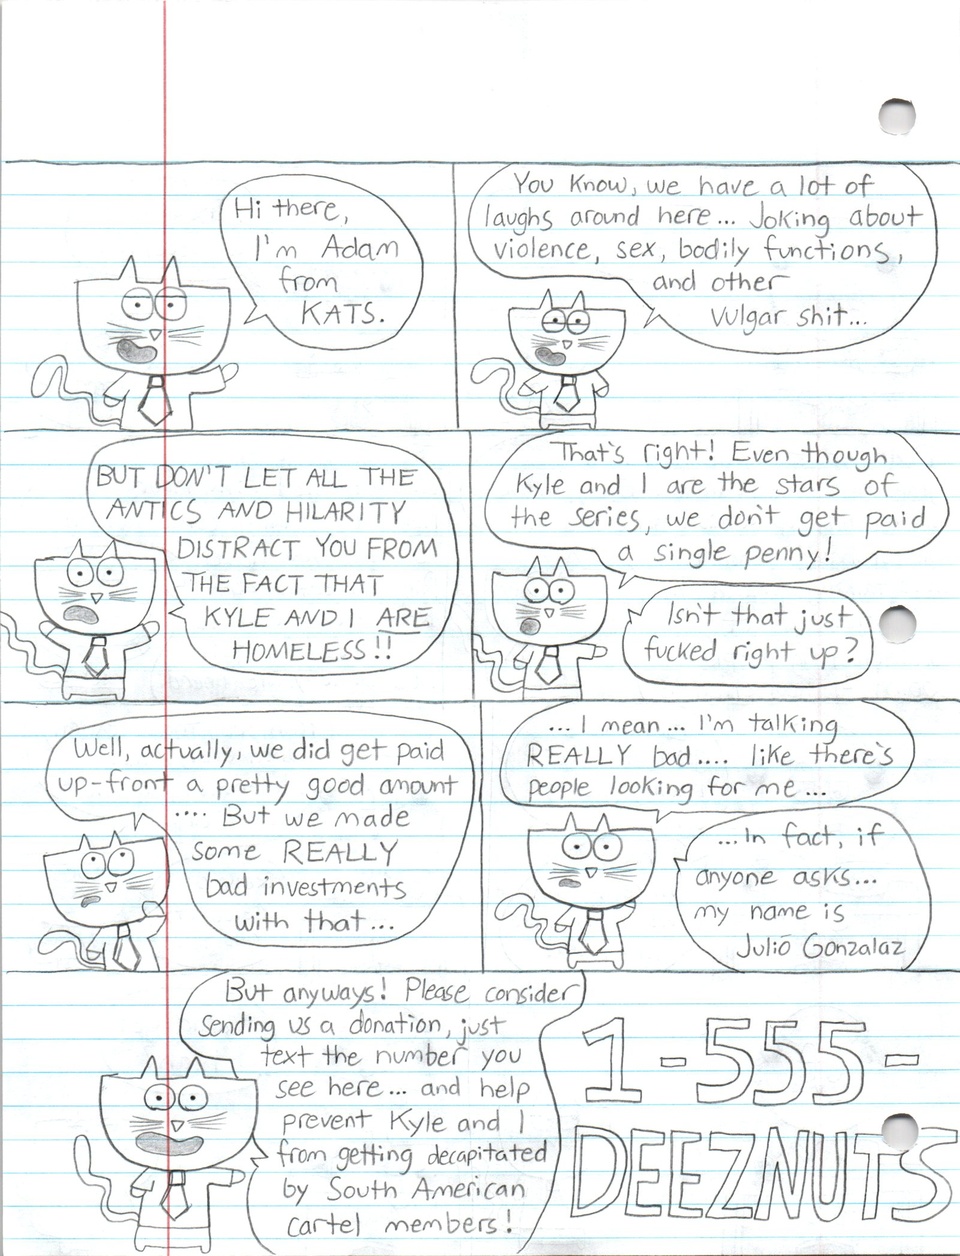 Hi there,
I'm Adam
from
KATS.
You know, we have a lot of
laughs around here... Joking about
violence, sex, bodily functions,
and other
vulgar shit...
BUT DON'T LET ALL THE
ANTICS AND HILARITY
DISTRACT YOU FROM
THE FACT THAT
KYLE AND I ARE
HOMELESS!!
That's right! Even though
Kyle and I are the stars of
the series, we don't get paid
a single penny!
Isn't that just
fucked right up?
Well, actually, we did get paid
up-front a pretty good amount
.... But we made
some REALLY
bad investments
with that...
... I mean... I'm talking
REALLY bad.... like there's
people looking for me...
...In fact, if
anyone asks...
my name is
Julió Gonzalaz
But anyways! Please consider
sending us a donation, just
text the number you
see here... and help
prevent Kyle and I
from getting decapitated
by South American
cartel members!
1-555-
DEEZNUTS